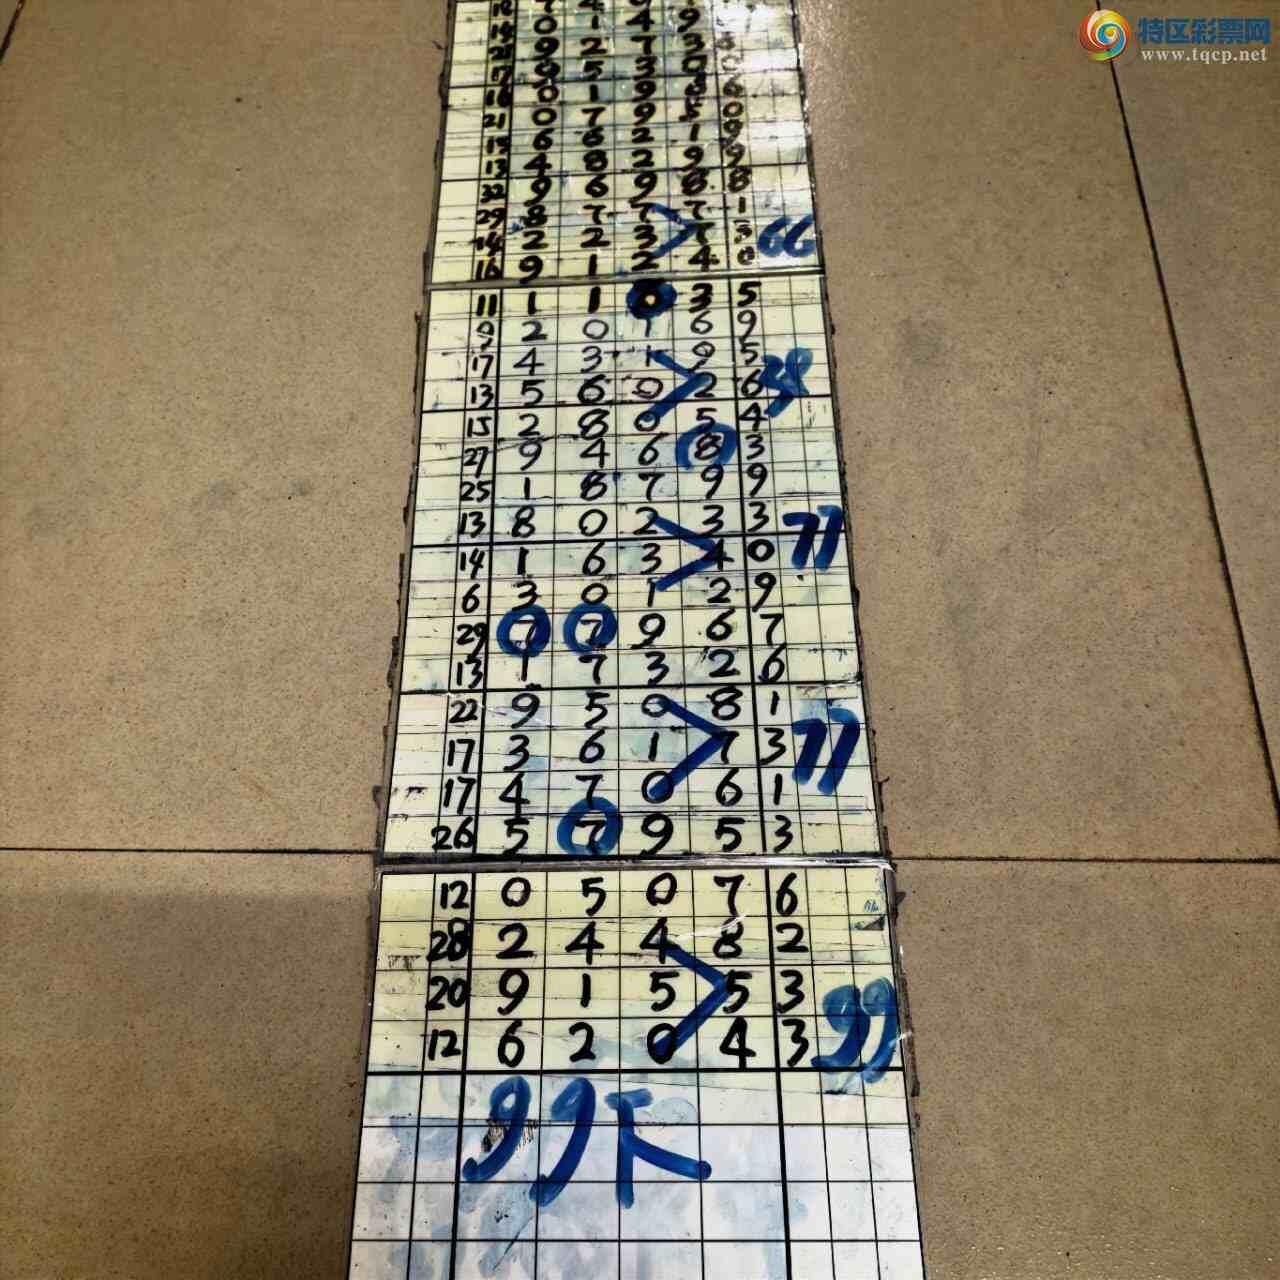 特区彩票网
www.tqcp.net
21 0 7 9 5 0
15 6 6 2 1 9
13 4 8 2 9 9
32 9 6 9 8 8
29 8 7 7 7 1
14 2 2 3 7 3 66
16 9 1 2 4 0
11 1 1 6 3 5
9 2 0 1 6 9
17 4 3 1 9 5
13 5 6 0 2 6 38
15 2 8 0 5 4
27 9 4 6 8 3
25 1 8 7 9 9
13 8 0 2 3 3 77
14 1 6 3 4 0
6 3 0 1 2 9
29 7 7 9 6 7
13 1 7 3 2 6
22 9 5 0 8 1
17 3 6 1 7 3 77
17 4 7 0 6 1
26 5 7 9 5 3
12 0 5 0 7 6
28 2 4 4 8 2
20 9 1 5 5 3 99
12 6 2 0 4 3
99下